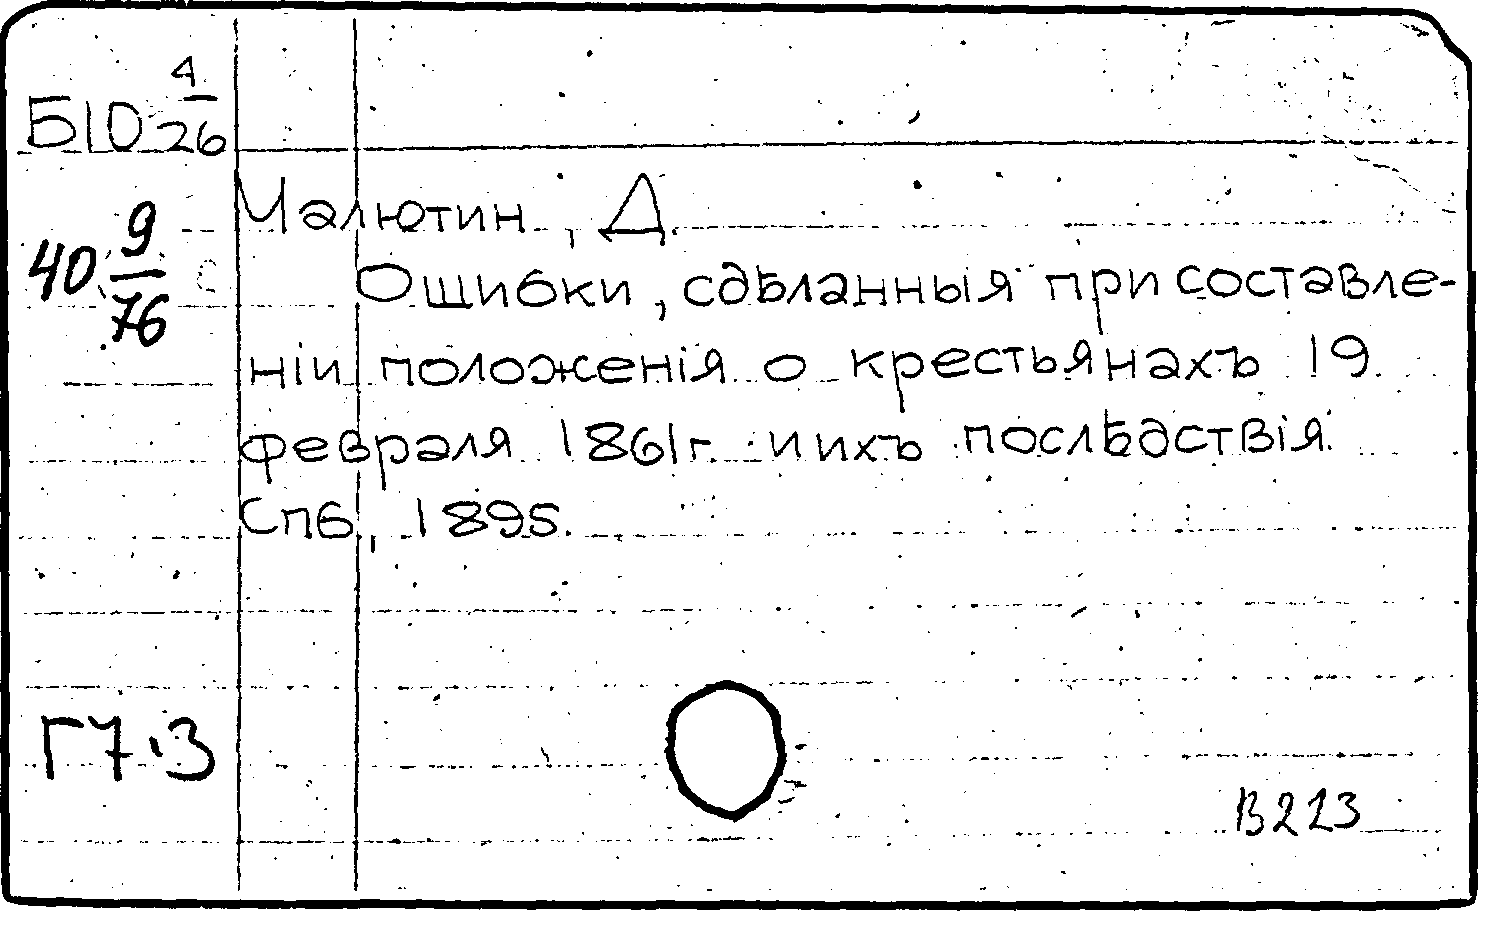 Б10 4/26
Чалютин, Д.
40 9/76
Ошибки, сдѣланныя при составле-
нiи положенiя о крестьянахъ 19
февраля 1861 г. и ихъ послѣдствiя.
Спб, 1895.
Г7.3
В223